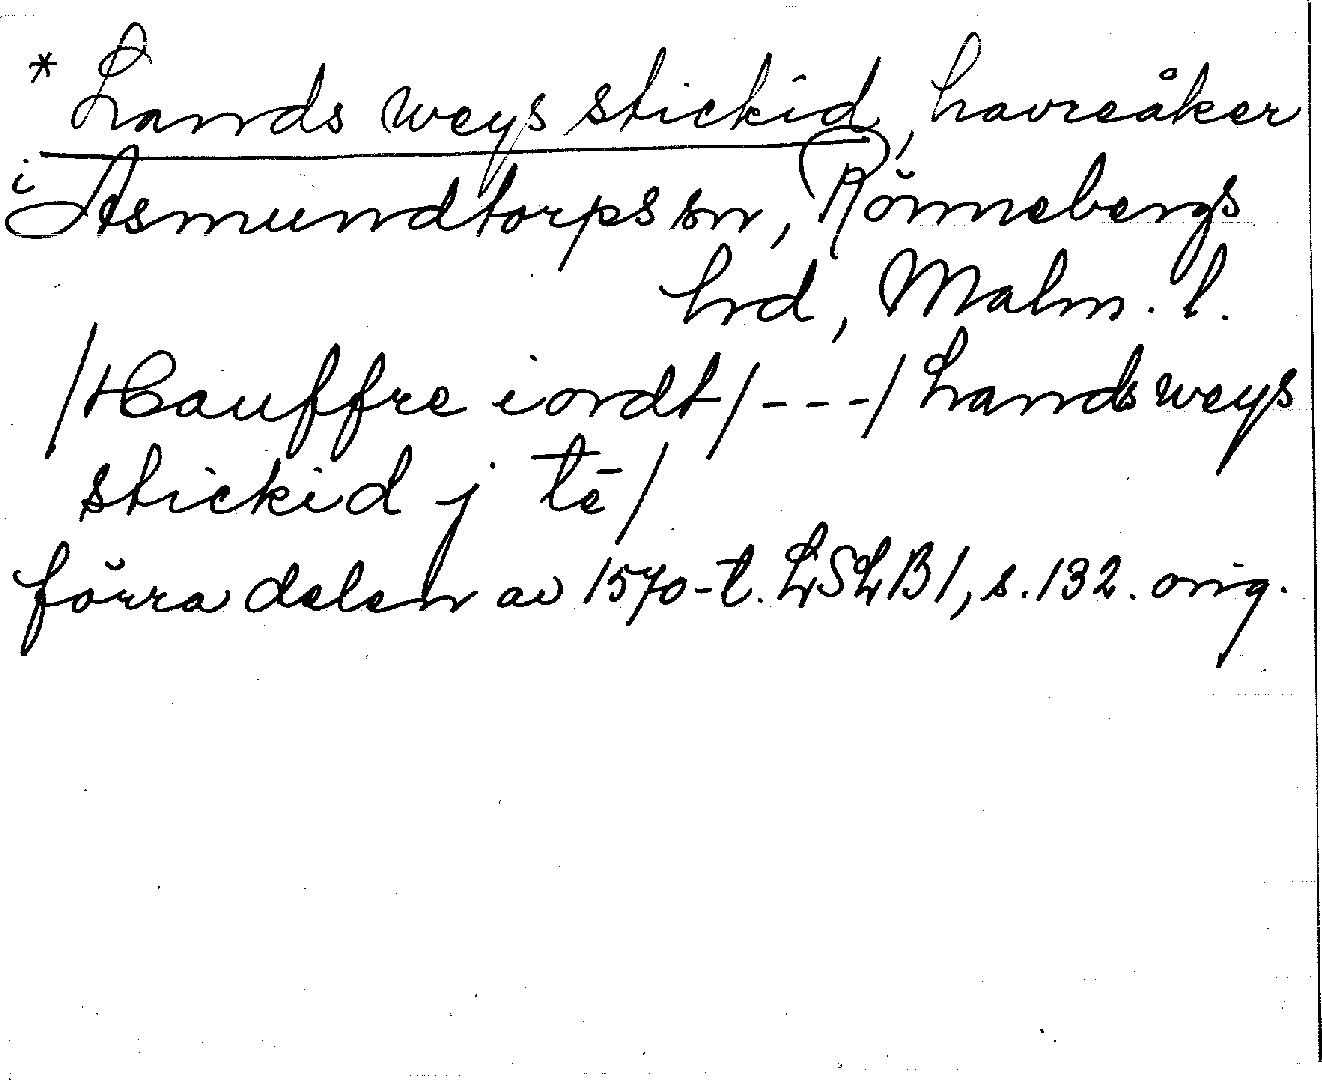 * Lands weys stickid, havreåker
i Asmundtorps sn, Rönnebergs
hrd, Malm. l.
/Hauffre iordt/---/Lands weys
stickid j tē/
förra delen av 1570-t. LSLB1, s. 132. orig.